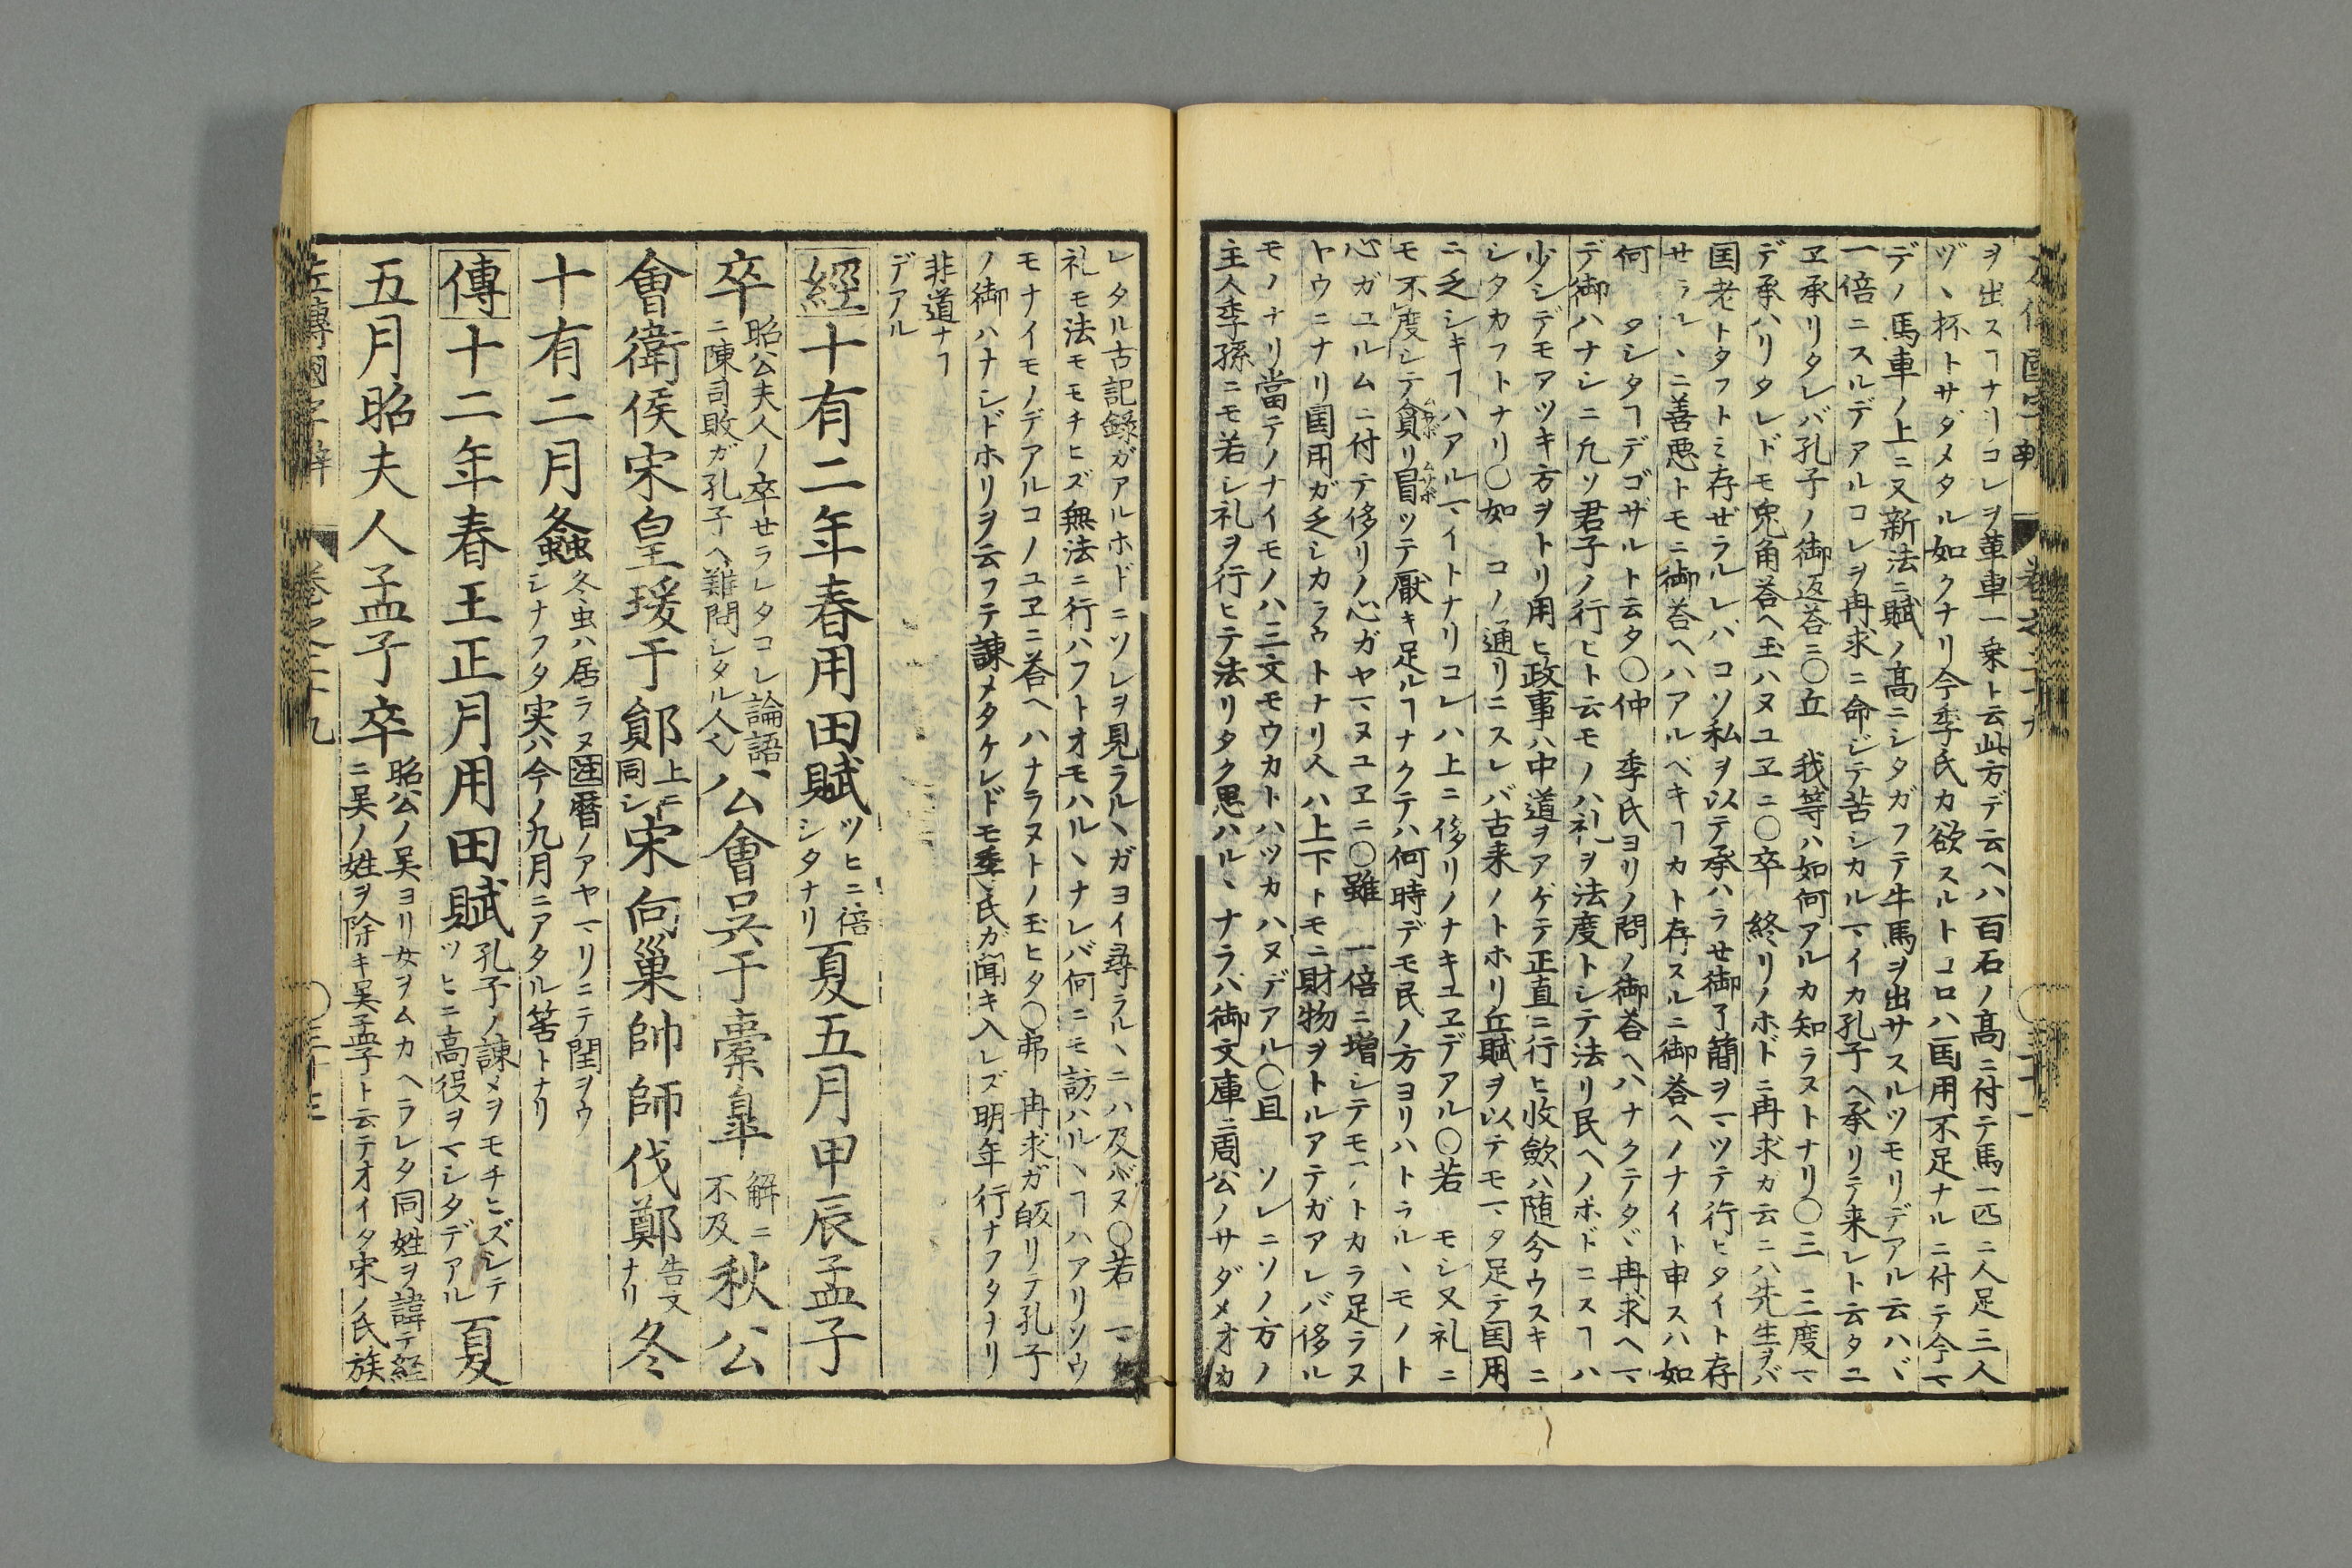 ヲ出スヿナｲﾞコレヲ革車一乗ト云此方デ云ヘハ百石ノ髙ニ付テ馬一匹ニ人足三人
ヅヽ杯トサダメタル如クナリ今季氏カ欲スルトコロハ囯用不足ナルニ付テ今マ
デノ馬車ノ上ニ又新法ニ賦ノ髙ニシタガフテ牛馬ヲ出サスルツモリデアル云ハヾ
一倍ニスルデアルコレヲ冉求ニ命ジテ苦シカルマイカ孔子ヘ承リテ来レト云タユ
ヱ承リタレバ孔子ノ御返荅ニ〇丘　我等ハ如何アルカ知ラヌトナリ〇三　三度マ
デ承ハリタレドモ兎角荅ヘ玉ハヌユヱニ〇卒　終リノホドニ冉求ガ云ニハ先生ヲバ
囯老トタフトミ存ゼラルレバコソ私ヲ以テ承ハラセ御了簡ヲマツテ行ヒタイト存
セラレヽニ善悪トモニ御荅ヘハアルベキヿカト存スルニ御荅ヘノナイト申スハ如
何　タシタヿデゴザルト云タ〇仲　季氏ヨリノ問ノ御荅ヘハナクテタヾ冉求ヘマ
デ御ハナシニ凢ソ君子ノ行ヒト云モノハ礼ヲ法度トシテ法リ民ヘノホドコスヿハ
少シデモアツキ方ヲトリ用ヒ政事ハ中道ヲアゲテ正直ニ行ヒ收歛ハ随分ウスキニ
シタカフトナリ〇如　コノ通リニスレバ古来ノトホリ丘賦ヲ以テモマタ足テ囯用
ニ乏シキヿハアルマイトナリコレハ上ニ侈リノナキユヱデアル〇若　モシ又礼ニ
モ不度シテ貪リ冒ツテ厭キ足ルヿナクテハ何時デモ民ノ方ヨリハトラルヽモノト
心ガユルムニ付テ侈リノ心ガヤマヌユヱニ〇雖　一倍ニ増シテモマﾞトカラ足ラヌ
ヤウニナリ囯用ガ乏シカラウトナリ人ハ上下トモニ財物ヲトルアテガアレバ侈ル
モノナリ當テノナイモノハ三文モウカトハツカハヌデアル〇且　ソレニソノ方ノ
主人季孫ニモ若シ礼ヲ行ヒテ法リタク思ハルヽナラバ御文庫ニ周公ノサダメオカ
レタル古記録ガアルホドニソレヲ見ラルヽガヨイ尋ラルヽニハ及バヌ〇若
礼モ法モモチヒズ無法ニ行ハフトオモハルヽナレバ何ニモ訪ハルヽヿハアリソウ
モナイモノデアルコノユヱニ荅ヘハナラヌトノ玉ヒタ〇弗　冉求ガ皈リテ孔子
ノ御ハナシドホリヲ云フテ諫メタケレドモ季氏ガ聞キ入レズ明年行ナフタナリ
非道ナヿ
デアル
經十有二年春用田賦ツヒニ一倍シタナリ夏五月甲辰孟子
卒昭公夫人ノ卒せラレタコレ論語ニ陳司敗ガ孔子ヘ難問シタル人也公會吳于橐皐解ニ不及秋公
會衛侯宋皇瑗于鄖上ニ同シ宋向巢帥師伐鄭告文ナリ冬
十有二月螽冬虫ハ居ラヌ注暦ノアヤマリニテ閏ヲウシナフタ実ハ今ノ九月ニアタル筈トナリ
傳十二年春王正月用田賦孔子ノ諫メヲモチヒズシテツヒニ高役ヲマシタデアル夏
五月昭夫人孟子卒昭公ノ吴ヨリ女ヲムカヘラレタ同姓ヲ諱テ経ニ吴ノ姓ヲ除キ吴孟子ト云テオイタ宋ノ氏族
左傳國字解　卷之三十九　〇三十三